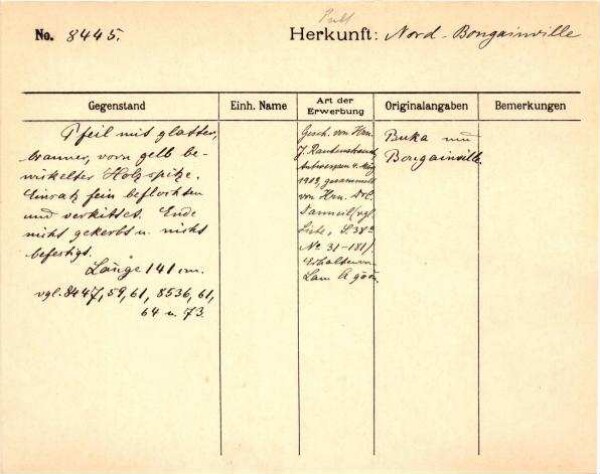 No. 8445.
Herkunft: Nord-Bougainville
Gegenstand
Einh. Name
Art der Erwerbung
Originalangaben
Bemerkungen
Pfeil mit glatter,
brauner, vorn gelb be-
wickelter Holzspitze.
Einsatz fein beflochten
und verkittet. Ende
nicht gekerbt u. nicht
befestigt.
Länge 141 cm.
vgl. 8447, 59, 61, 8536, 61,
64 u. 73.
Gesch. von Hrn.
J. Rautenstrauch,
Antwerpen 4. 
1909, gesammelt
von Hrn. 
vgl.
Liste, S. 38
No 31-181)
Erhalten von
Buka und
Bougainville.